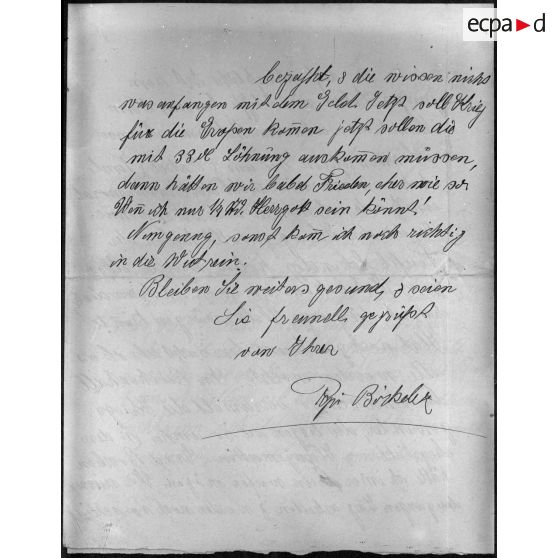 ecpad
bezahlt, & die wissen nichs
was anfangen mit dem Geld. Jetzt soll Krieg
für die Grosen kom̄en jetzt sollen die
mit 33 Löhnung auskom̄en müssen,
dann hätten wir Frieden, eher wie so
Wen̄ ich nur ½ Herrgot sein könnt!
Nun genug, sonst kom̄ ich noch richtig
in die Wut rein.
Bleiben Sie weiters gesund, & seien
Sie freundl. gegrüßt
von Ihrer
Böckeler